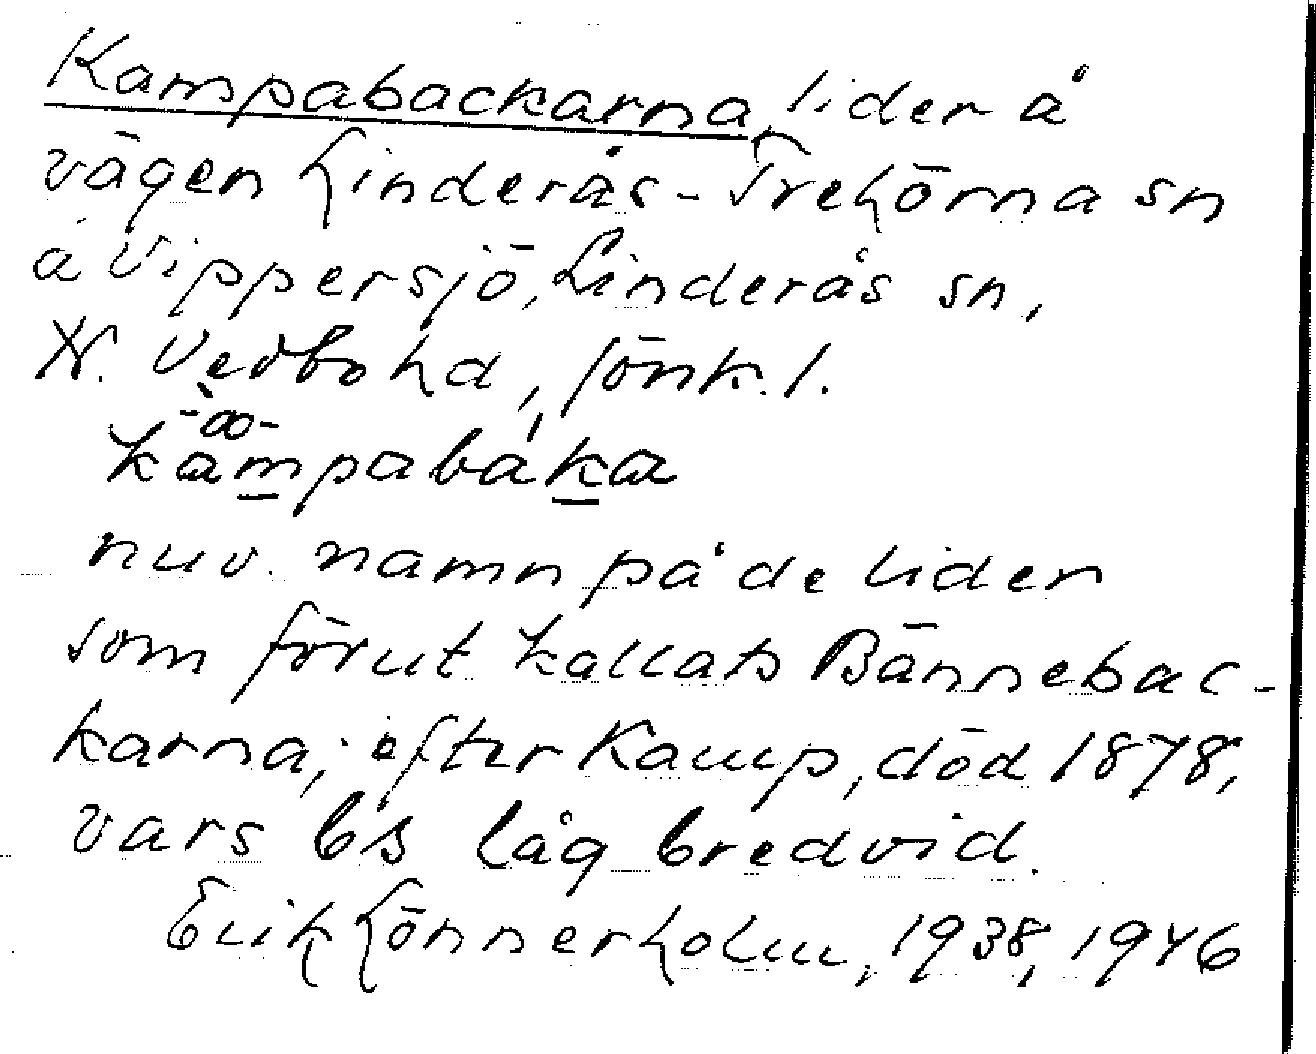 Kampabackarna, lider å
vägen Linderås-Trehörna sn
å Vippersjö, Linderås sn,
N. Vedbo hd, Jönk. l.
kàmpabáka
nuv. namn på de lider
som förut kallats Bännebac-
karna; efter Kamp, död 1878,
vars bs låg bredvid.
Erik Lönnerholm, 1938, 1946